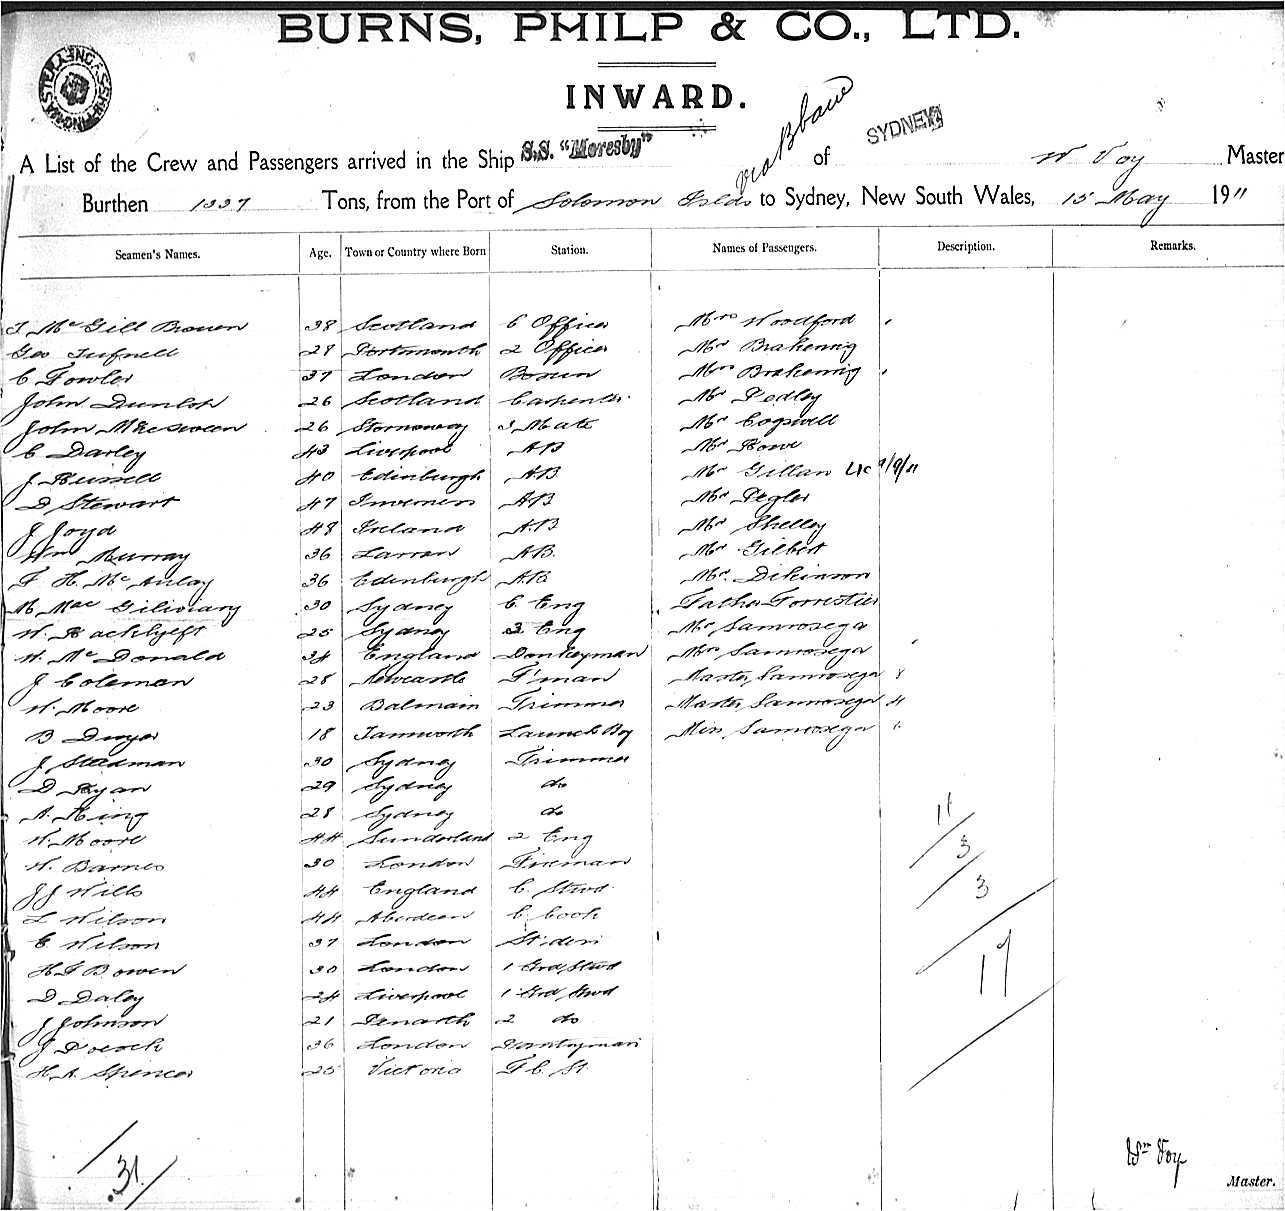 BURNS, PHILP & CO., LTD.
INWARD.
A List of the Crew and Passengers arrived in the Ship S.S. "Moresby" via Bbane of SYDNEY W Voy Master
Burthen 1337 Tons, from the Port of Solomon Islds to Sydney, New South Wales, 15 May 1911
Seamen's Names. Age. Town or Country where Born Station. Names of Passengers. Description. Remarks.
Mc Gill Brown 38 Scotland C Officer Mrs Woodford
Geo Tufnell 28 Portsmouth 2 Officer Mr
C Fowler 37 London Bosun Mrs
John Dunlop 26 Scotland Carpenter Mr Pedley
John 26 Stornoway 3 Mate Mr Cogswell
C Darley 43 Liverpool AB Mr Rowe
J Russell 40 Edinburgh AB Mr Gillan
D Stewart 47 Inverness AB Mr Pegler
J 48 Ireland AB Mr Shelley
Wm Murray 36 AB Mr Gilbert
F H Mc Aulay 36 Edinburgh AB Mr Dikinson
M Mac 30 Sydney C Eng Father
W. 25 Sydney 3 Eng Mr
W. Mc Donald 34 England Donkeyman Mrs
J Coleman 28 Newcastle F'man Master 8
W. Moore 23 Balmain Trimmer Master 4
B Dwyer 18 Tamworth Launch Boy Miss
J Steadman 30 Sydney Trimmer
D Ryan 29 Sydney do
A. King 28 Sydney do
W. Moore 44 Sunderland 2 Eng
W. Barnes 30 London Fireman
JJ Wills 44 England C. Stwd
L Wilson 44 Aberdeen C Cook
E Wilson 37 London
H Bowen 30 London 1 Grd Stwd
D Daley 24 Liverpool 1 Grd Stwd
J Johnson 21 Penarth 2 do
J Pocock 36 London
H. A Spencer 25 Victoria F C St
11
3
3
17
31
Wm Voy
Master.